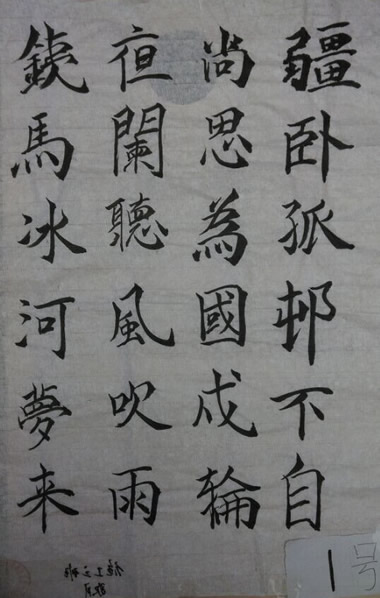 彊卧孤邨不自
尚思為國戍輪
夜闌聽風吹雨
銕馬冰河夢来
1号